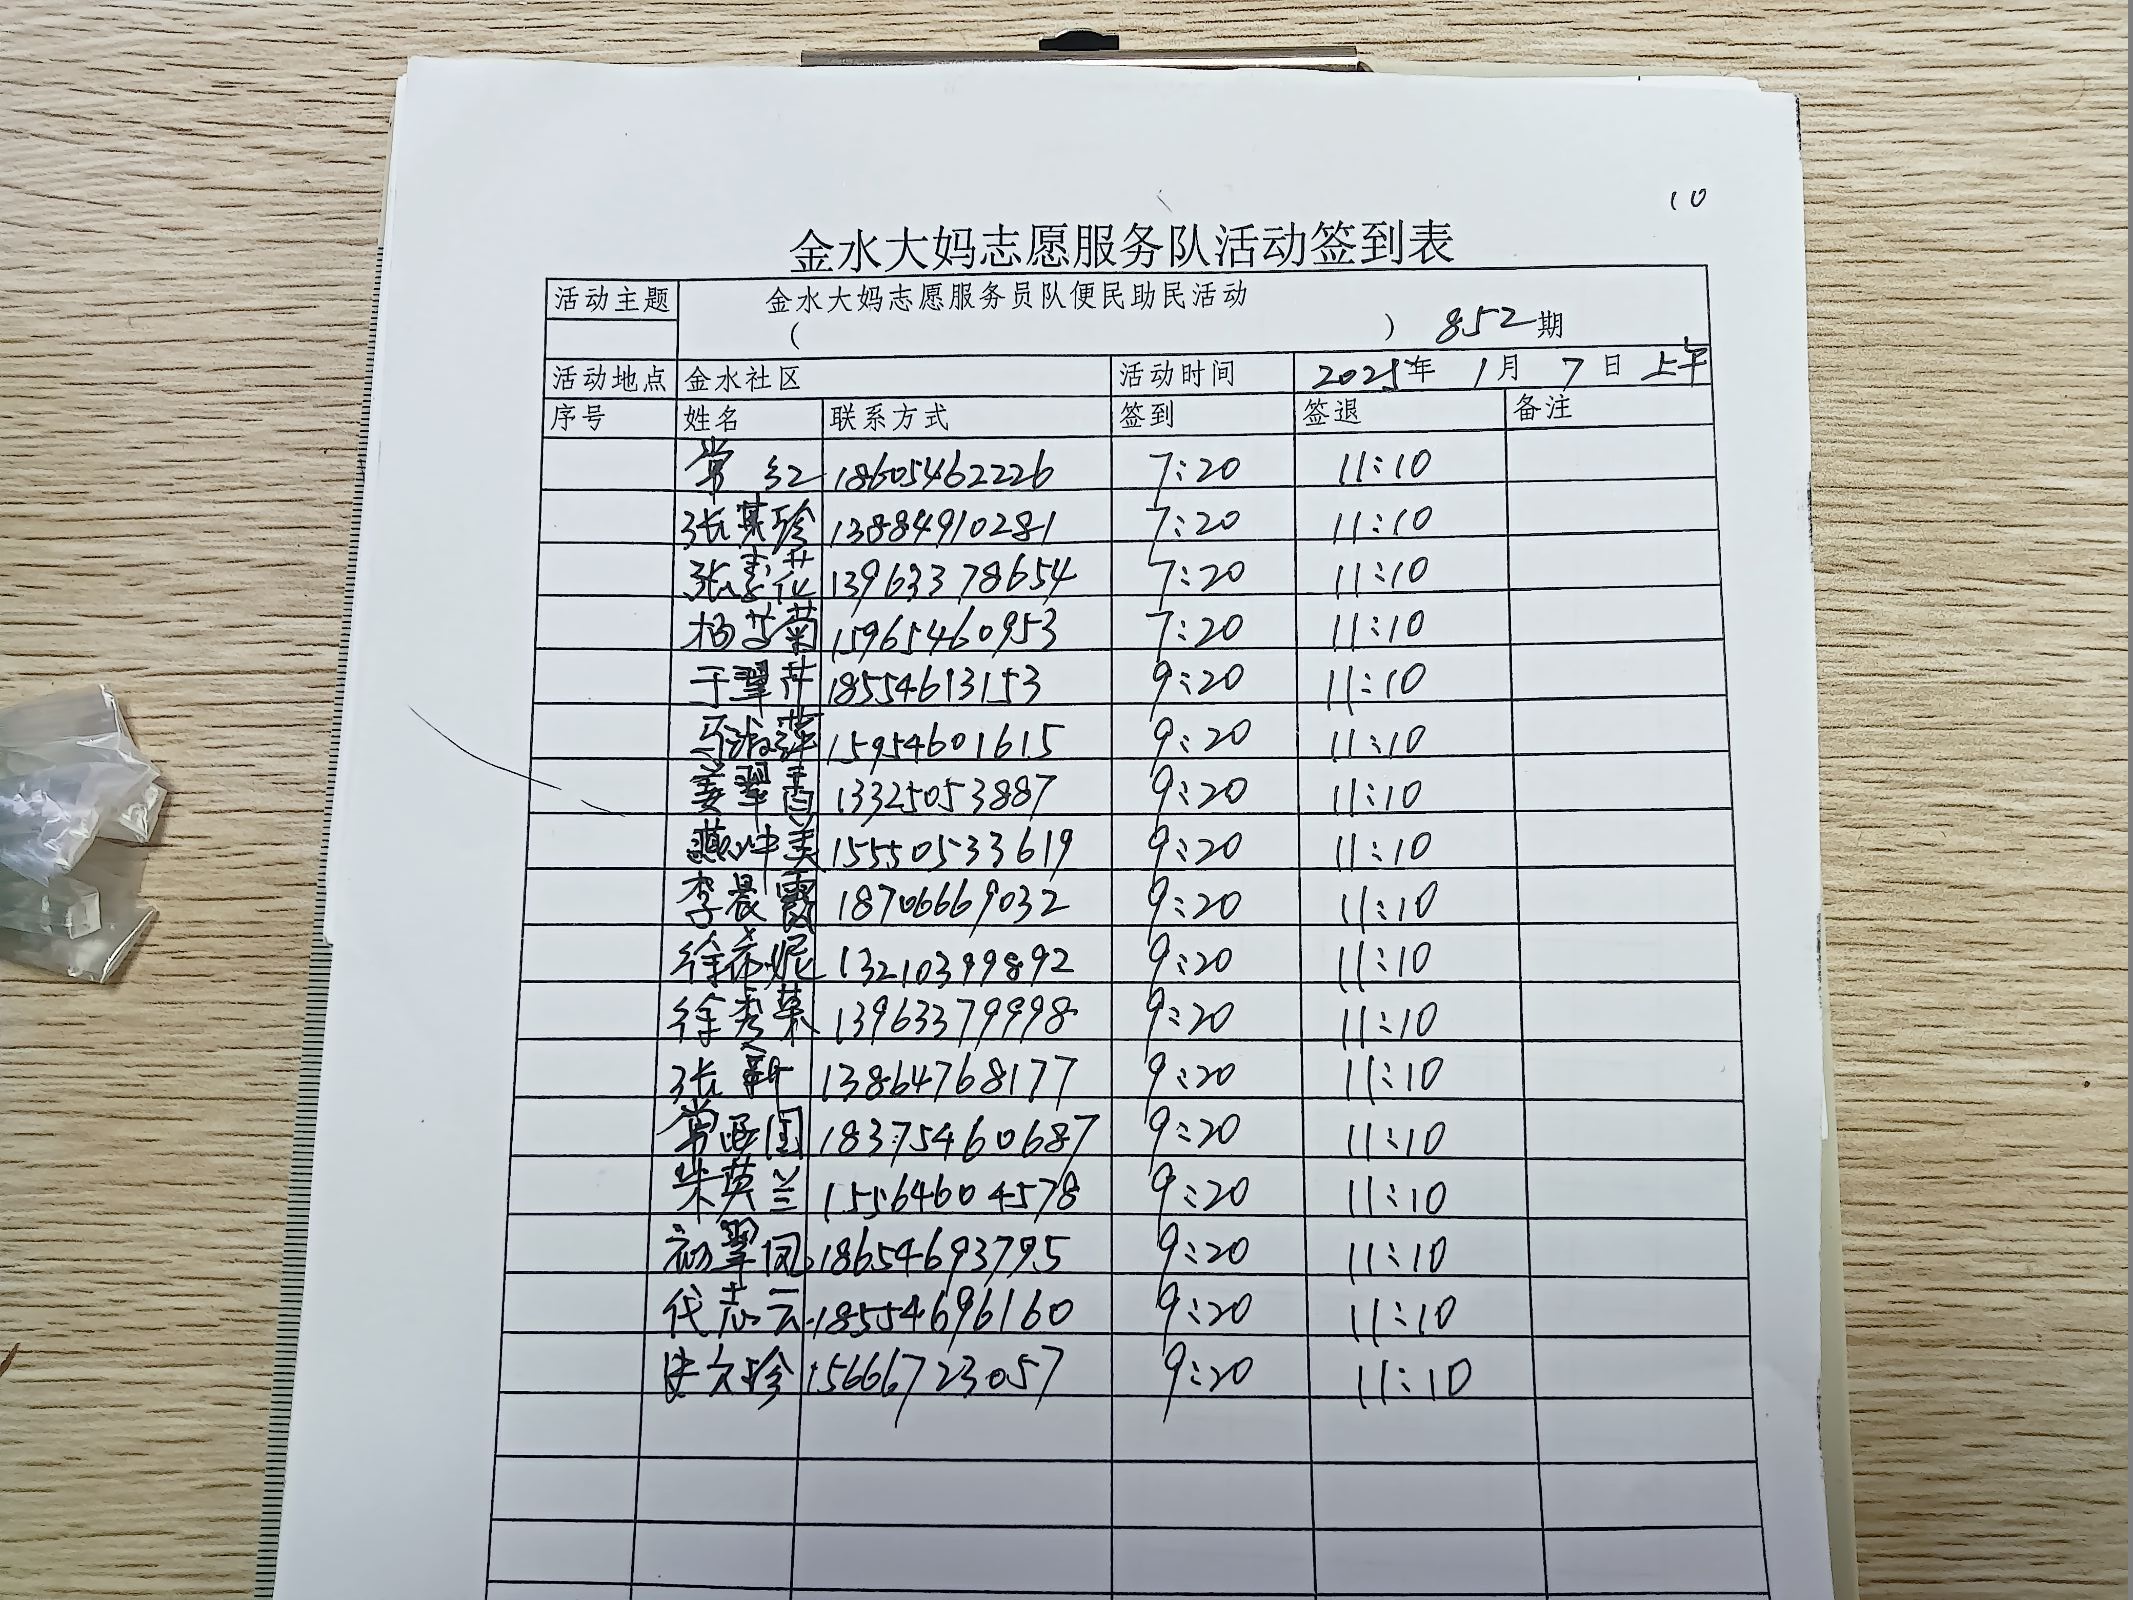 10
金水大妈志愿服务队活动签到表
活动主题 金水大妈志愿服务员队便民助民活动
( ) 852期
活动地点 金水社区 活动时间 2025年 1月 7日 上午
序号 姓名 联系方式 签到 签退 备注
常红 18605462226 7:20 11:10
张英珍 13884910281 7:20 11:10
张素花 13963378654 7:20 11:10
杨芳菊 15965460953 7:20 11:10
于翠萍 18554613153 9:20 11:10
马淑萍 15954601615 9:20 11:10
姜翠香 13325053887 9:20 11:10
燕冲美 15550533619 9:20 11:10
李晨霞 18706669032 9:20 11:10
徐希妮 13210399892 9:20 11:10
徐秀英 13963379998 9:20 11:10
张新 13864768177 9:20 11:10
常 国 18375460687 9:20 11:10
朱英兰 15564604578 9:20 11:10
初翠凤 18654693795 9:20 11:10
代志云 18554696160 9:20 11:10
文珍 15666723057 9:20 11:10